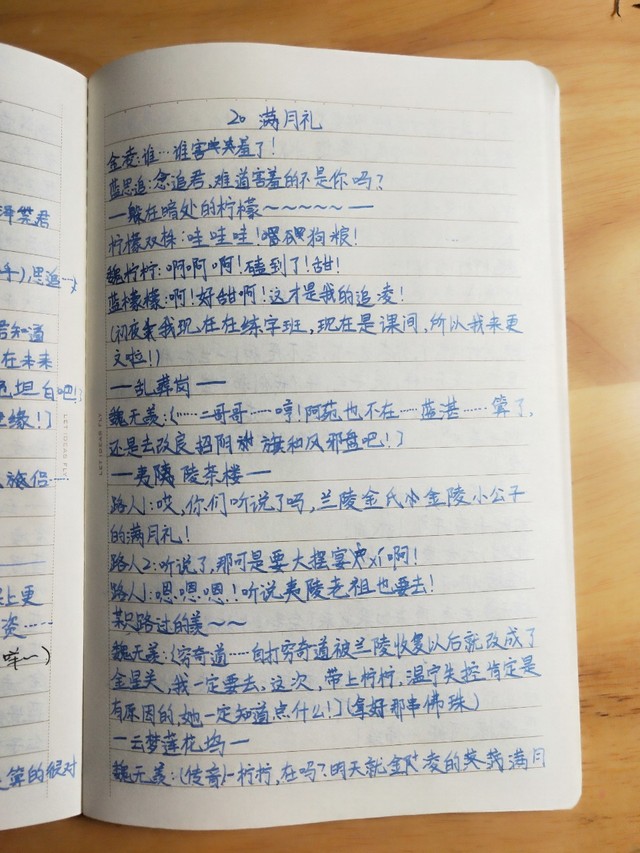 20 满月礼
金凌:谁…谁害羞了!
蓝思追:念追君,难道害羞的不是你吗?
—躲在暗处的柠檬~~~~~—
柠檬双株:哇哇哇!嗯狗粮!
魏柠柠:啊啊啊!磕到了!甜!
蓝檬檬:啊!好甜啊!这才是我的追凌!
(初夜我现在在练字班,现在是课间,所以我来更
文啦!)
—乱葬岗—
魏无羡:(……二哥哥……哼!阿苑也不在……蓝湛……算了,
还是去改良招阴旗和风邪盘吧!)
—夷陵茶楼—
路人1:哎,你们听说了吗,兰陵金氏金陵小公子
的满月礼!
路人2:听说了,那可是要大摆宴啊!
路人1:嗯嗯嗯!听说夷陵老祖也要去!
某只路过的羡~~
魏无羡:(穷奇道……自打穷奇道被兰陵收复以后就改成了
金星关,我一定要去,这次,带上柠柠,温宁失控肯定是
有原因的,她一定知道点什么!)(拿好那串佛珠)
—云梦莲花坞—
魏无羡:(传音)-柠柠,在吗?明天就金凌的满月
泽芜君
),思追…
君知道
在未来
坦白吧!
缘!]
旅侣…
上更
资……
算的很对